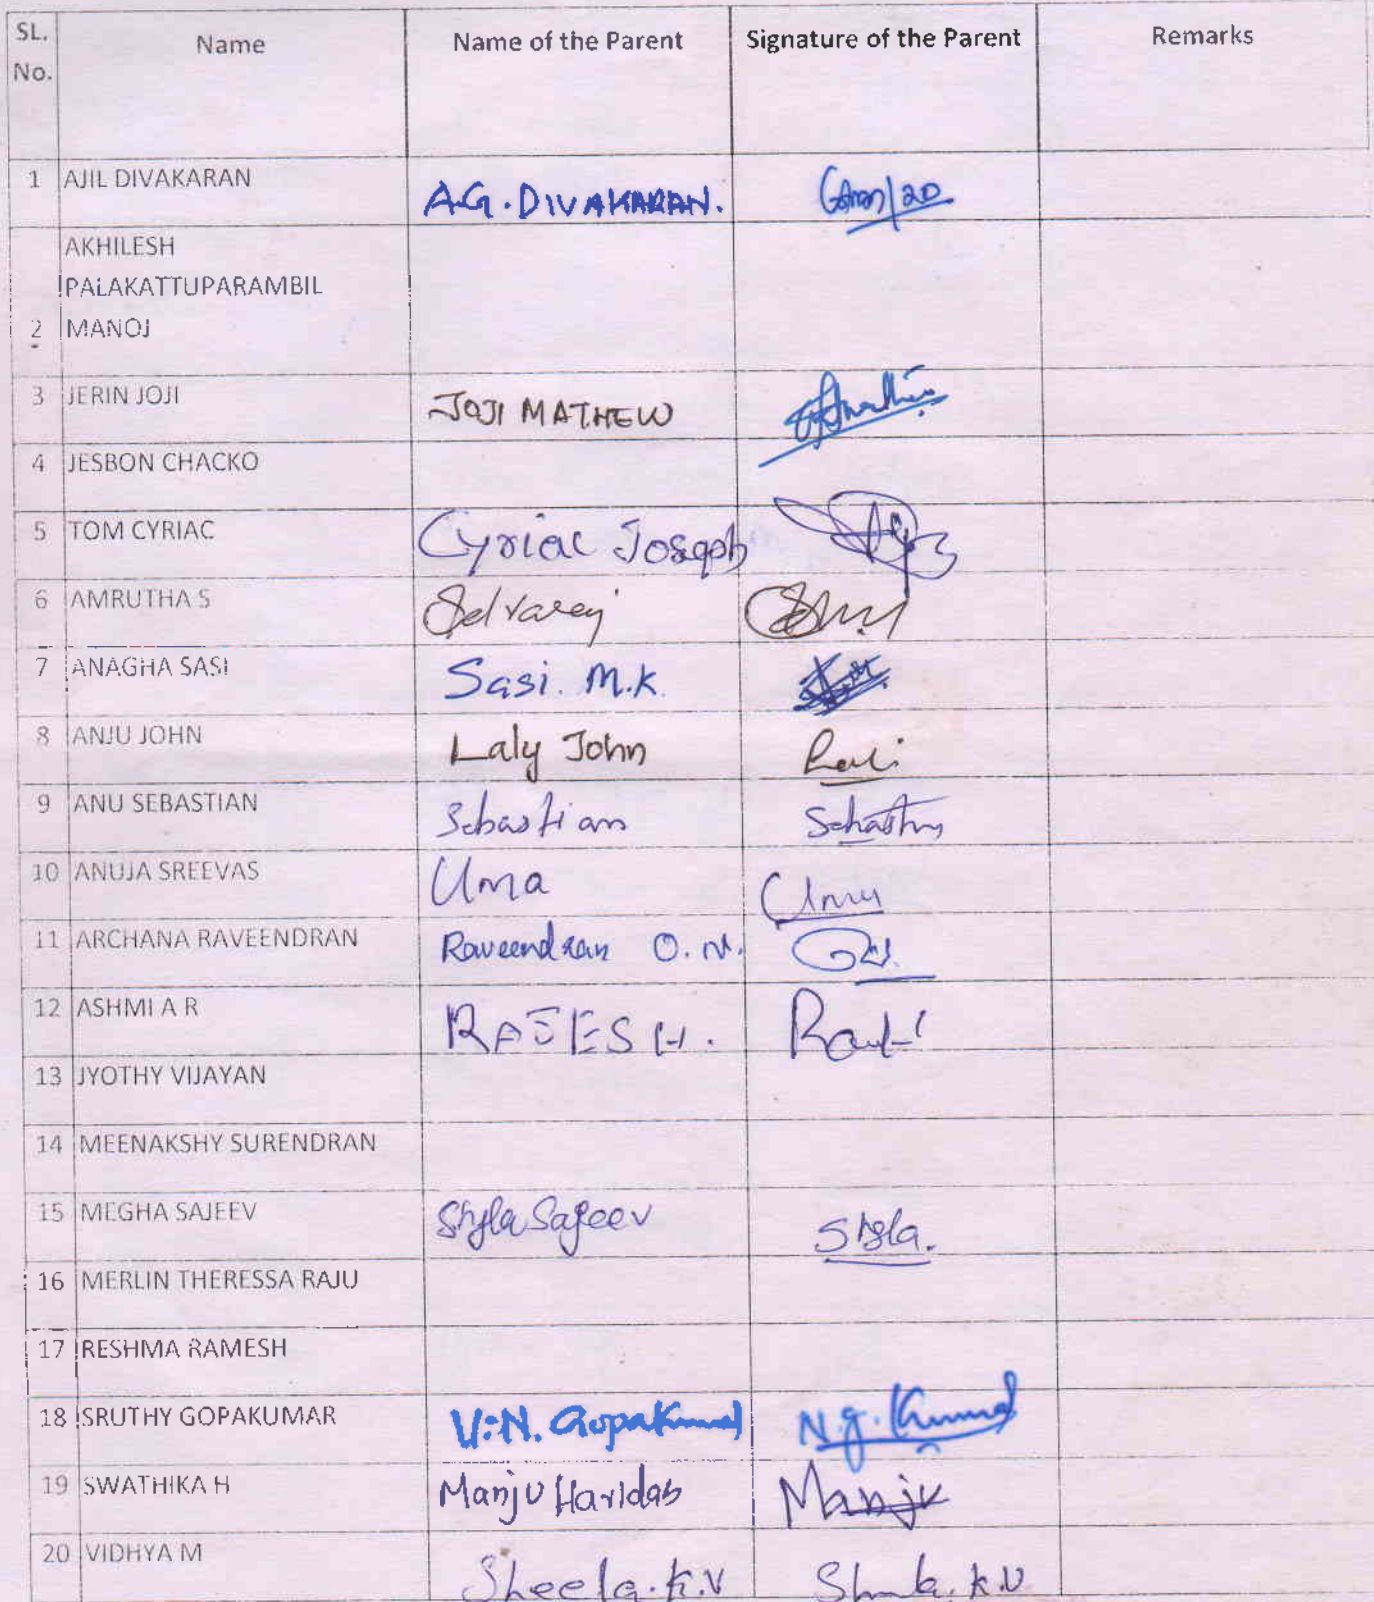 SL. No. Name Name of the Parent Signature of the Parent Remarks
1 AJIL DIVAKARAN A.G. DIVAKARAN.
AKHILESH
PALAKATTUPARAMBIL
2 MANOJ
3 JERIN JOJI JOJI MATHEW
4 JESBON CHACKO
5 TOM CYRIAC Cyriac Joseph
6 AMRUTHA S Selvaraj
7 ANAGHA SASI Sasi. M.K.
8 ANJU JOHN Laly John
9 ANU SEBASTIAN Sebastian
10 ANUJA SREEVAS Uma Uma
11 ARCHANA RAVEENDRAN Raveendran O.N.
12 ASHMI A R RAJESH.
13 JYOTHY VIJAYAN
14 MEENAKSHY SURENDRAN
15 MEGHA SAJEEV Shyla Sajeev
16 MERLIN THERESSA RAJU
17 RESHMA RAMESH
18 SRUTHY GOPAKUMAR V.N. Gopakumar
19 SWATHIKA H Manju Haridas Manju
20 VIDHYA M Sheela. K.V